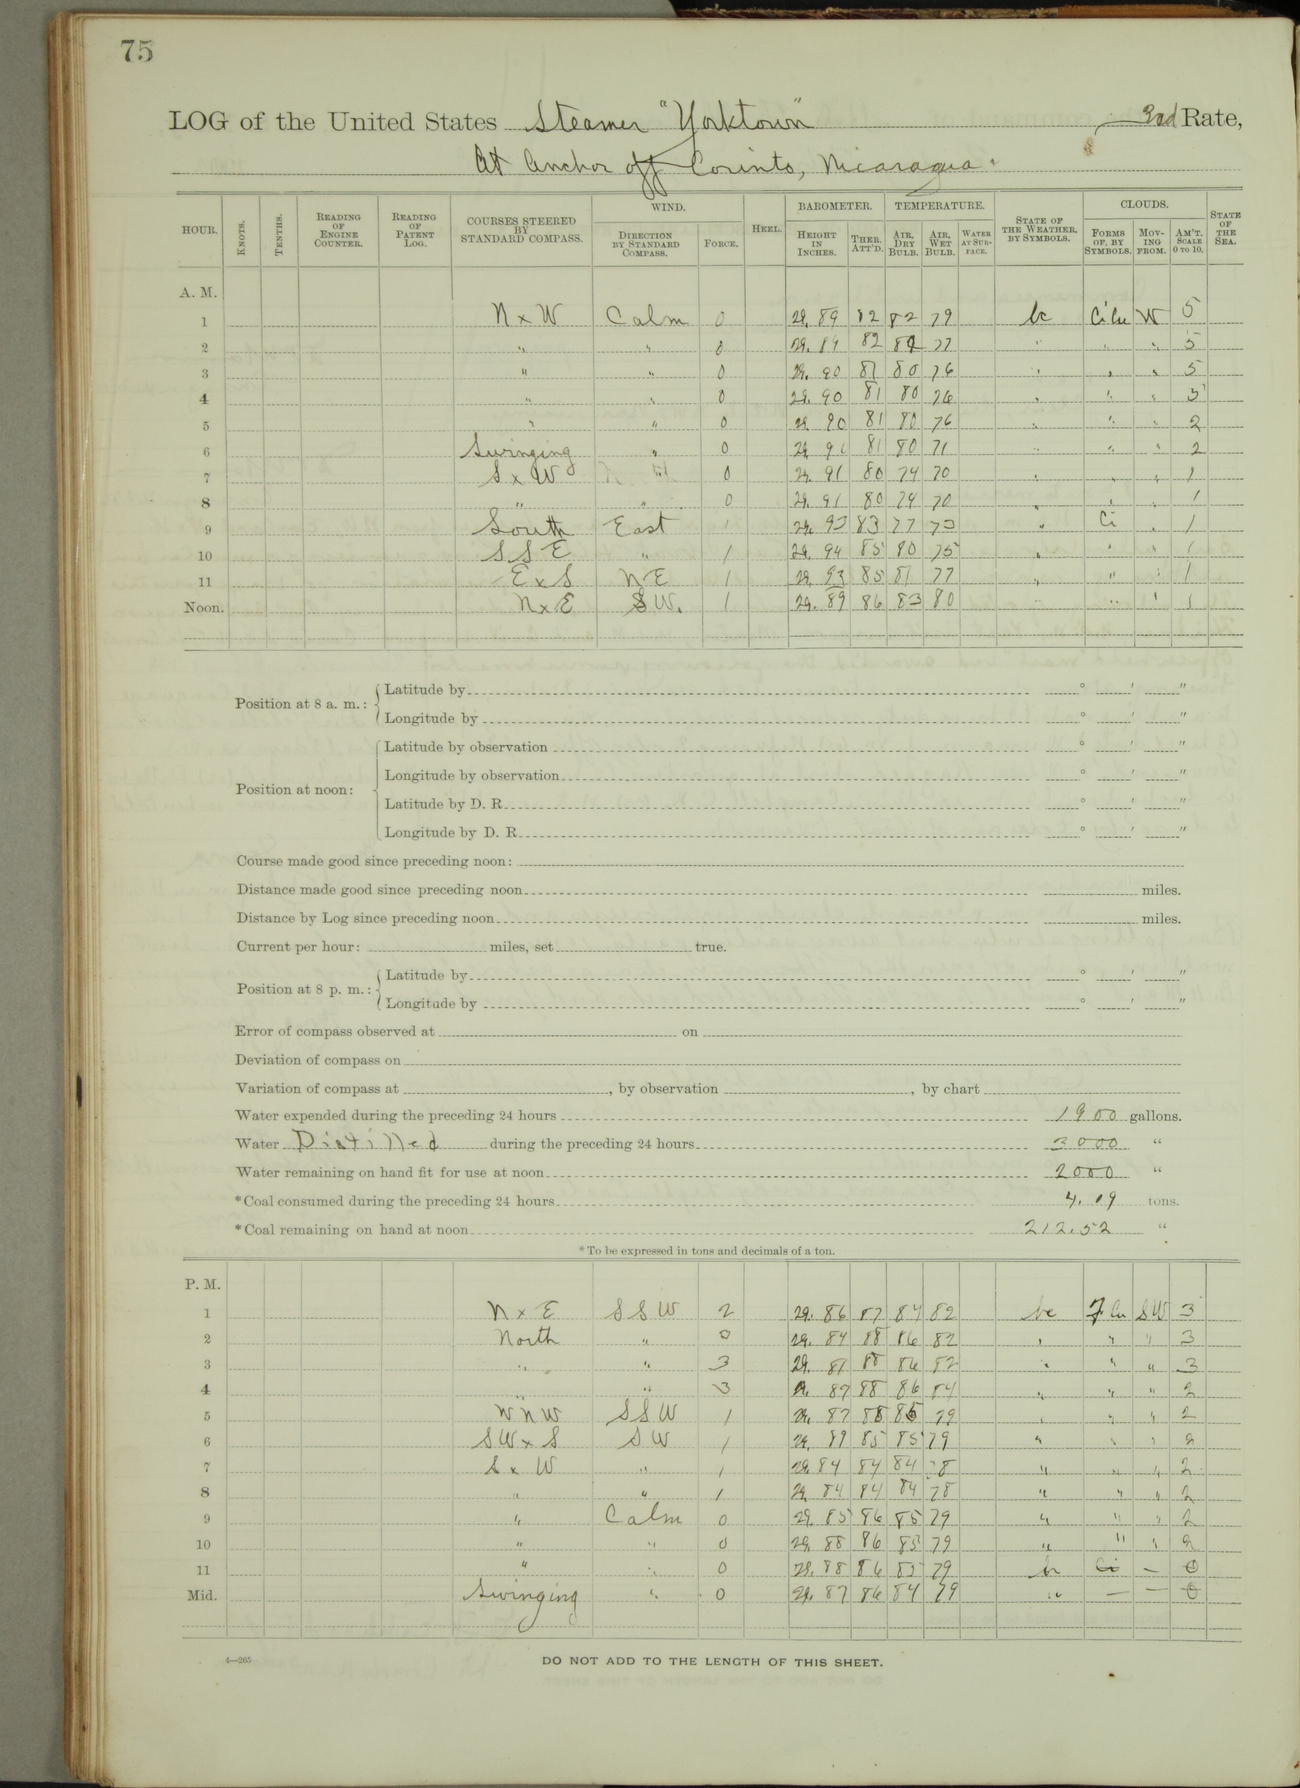 75
LOG of the United States Steamer "Yorktown" 3rd Rate,
At Anchor off Corinto, Nicaragua.
HOUR. KNOTS. TENTHS. READING OF ENGINE COUNTER. READING OF PATENT LOG. COURSES STEERED BY STANDARD COMPASS. WIND. DIRECTION BY STANDARD COMPASS. FORCE. HEEL. BAROMETER. HEIGHT IN INCHES. THER. ATT'D. TEMPERATURE. AIR, DRY BULB. AIR, WET BULB. WATER AT SURFACE. STATE OF THE WEATHER, BY SYMBOLS. CLOUDS. FORMS OF, BY SYMBOLS. MOVING FROM. AM'T. SCALE 0 TO 10. STATE OF THE SEA.
A. M.
1 N x W Calm 0 29. 89 82 82 79 bc Ci Cu W 5
2 " " 0 29. 89 82 77 " " " 5
3 " " 0 29. 90 81 80 76 " " " 5
4 " " 0 29. 90 81 80 76 " " " 3
5 " " 0 29. 90 81 80 76 " " " 2
6 Swinging " 0 29. 91 81 80 71 " " " 2
7 S x W " 0 29. 91 80 74 70 " " " 1
8 " " 0 29. 91 80 74 70 " " " 1
9 South East 1 29. 93 83 77 73 " Ci " 1
10 S S E " 1 29. 94 85 80 75 " " " 1
11 E x S N E 1 29. 93 85 81 77 " " " 1
Noon. N x E S W. 1 29. 89 86 83 80 " " " 1
Position at 8 a. m.: Latitude by ° ' "
Longitude by ° ' "
Latitude by observation ° ' "
Longitude by observation ° ' "
Position at noon:
Latitude by D. R. ° ' "
Longitude by D. R. ° ' "
Course made good since preceding noon:
Distance made good since preceding noon miles.
Distance by Log since preceding noon miles.
Current per hour: miles, set true.
Position at 8 p. m.: Latitude by ° ' "
Longitude by ° ' "
Error of compass observed at on
Deviation of compass on
Variation of compass at , by observation , by chart
Water expended during the preceding 24 hours 1900 gallons.
Water Distilled during the preceding 24 hours 3000 "
Water remaining on hand fit for use at noon 2000 "
*Coal consumed during the preceding 24 hours 4.19 tons.
*Coal remaining on hand at noon 212.52 "
*To be expressed in tons and decimals of a ton.
P. M.
1 N x E S S W 2 29. 86 87 84 82 bc Cu S W 3
2 North " 29. 84 88 86 82 " " " 3
3 " " 3 29. 81 88 86 82 " " " 3
4 " " 3 29. 88 86 84 " " " 2
5 W N W S S W 1 29. 88 79 " " " 2
6 S W x S S W 1 29. 85 85 79 " " " 2
7 S x W " 1 29. 84 84 84 78 " " " 2
8 " " 1 29. 84 84 84 78 " " " 2
9 " Calm 0 29. 85 86 85 79 " " " 2
10 " " 0 29. 88 86 85 79 " " " 2
11 " " 0 29. 88 86 85 79 b — 0
Mid. Swinging " 0 29. 87 86 84 79 " — — 0
4—265
DO NOT ADD TO THE LENGTH OF THIS SHEET.